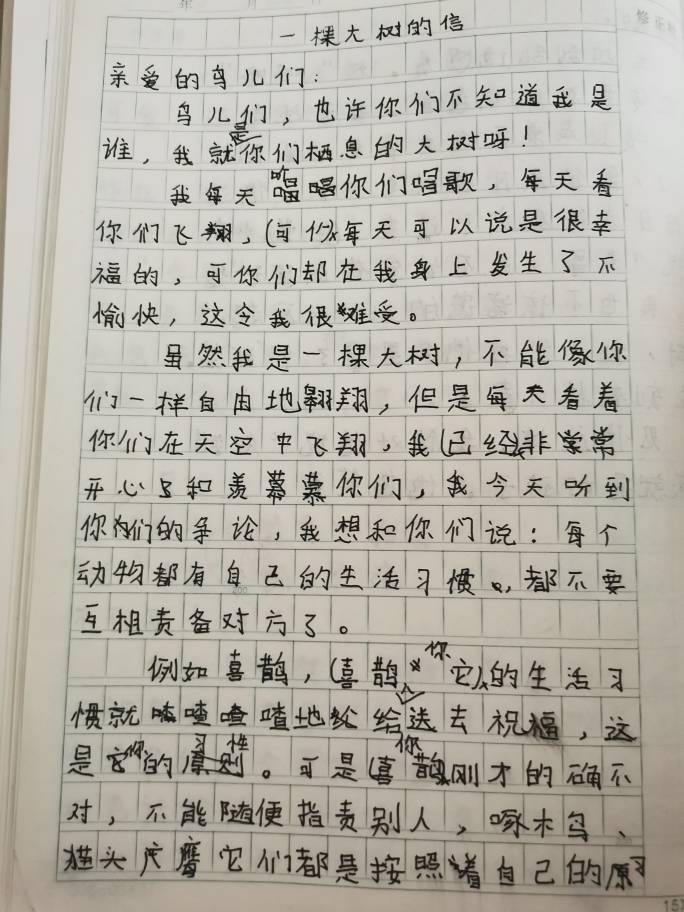 一棵大树的信
亲爱的鸟儿们：
鸟儿们，也许你们不知道我是
谁，我就是你们栖息的大树呀！
我每天听唱你们唱歌，每天看
你们飞翔，(可以)每天可以说是很幸
福的，可你们却在我身上发生了不
愉快，这令我很难受。
虽然我是一棵大树，不能像你
们一样自由地翱翔，但是每天看着
你们在天空中飞翔，我(已经)非常
开心与和羡慕你们，我今天听到
你们的争论，我想和你们说：每个
动物都有自己的生活习惯，都不要
互相责备对方了。
例如喜鹊，(喜鹊它)你的生活习
惯就喳喳喳喳地给送去祝福，这
是你的习性。可是(喜鹊)你刚才的确不
对，不能随便指责别人，啄木鸟、
猫头鹰它们都是按照着自己的原习